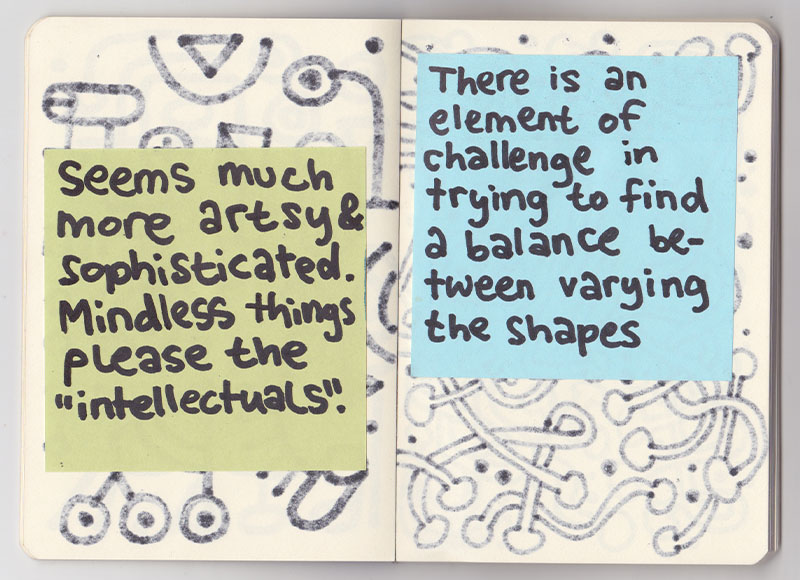 Seems much
more artsy &
sophisticated.
Mindless things
please the
"intellectuals".
There is an
element of
challenge in
trying to find
a balance be-
tween varying
the shapes